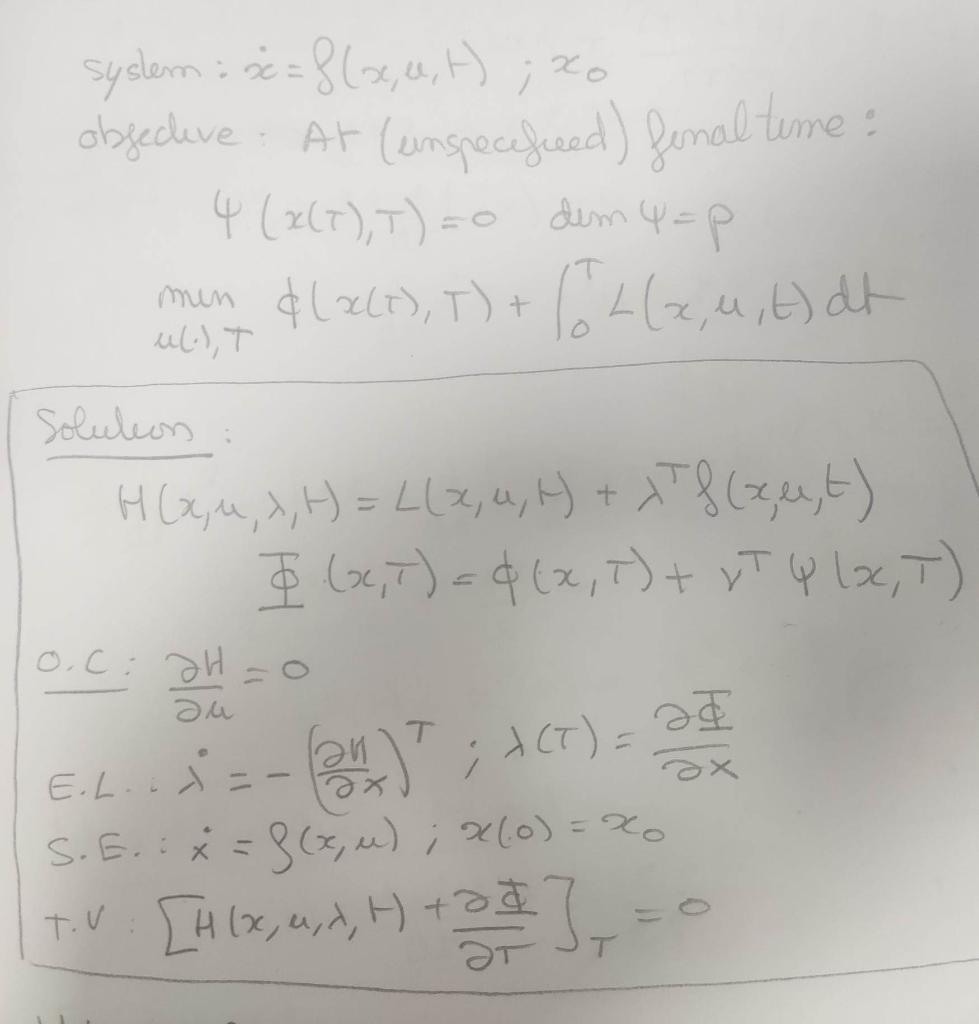 system : ẋ = f(x,u,t) ; x₀
objective : At (unspecified) final time :
ψ(x(T),T) = 0 dim ψ = p
min_{u(.),T} ϕ(x(T),T) + ∫₀ᵀ L(x,u,t) dt
Solution :
H(x,u,λ,t) = L(x,u,t) + λᵀ f(x,u,t)
Φ(x,T) = ϕ(x,T) + νᵀ ψ(x,T)
O.C : ∂H/∂u = 0
E.L. : λ̇ = -(∂H/∂x)ᵀ ; λ(T) = ∂Φ/∂x
S.E. : ẋ = f(x,u) ; x(0) = x₀
T.V : [H(x,u,λ,t) + ∂Φ/∂T]_T = 0